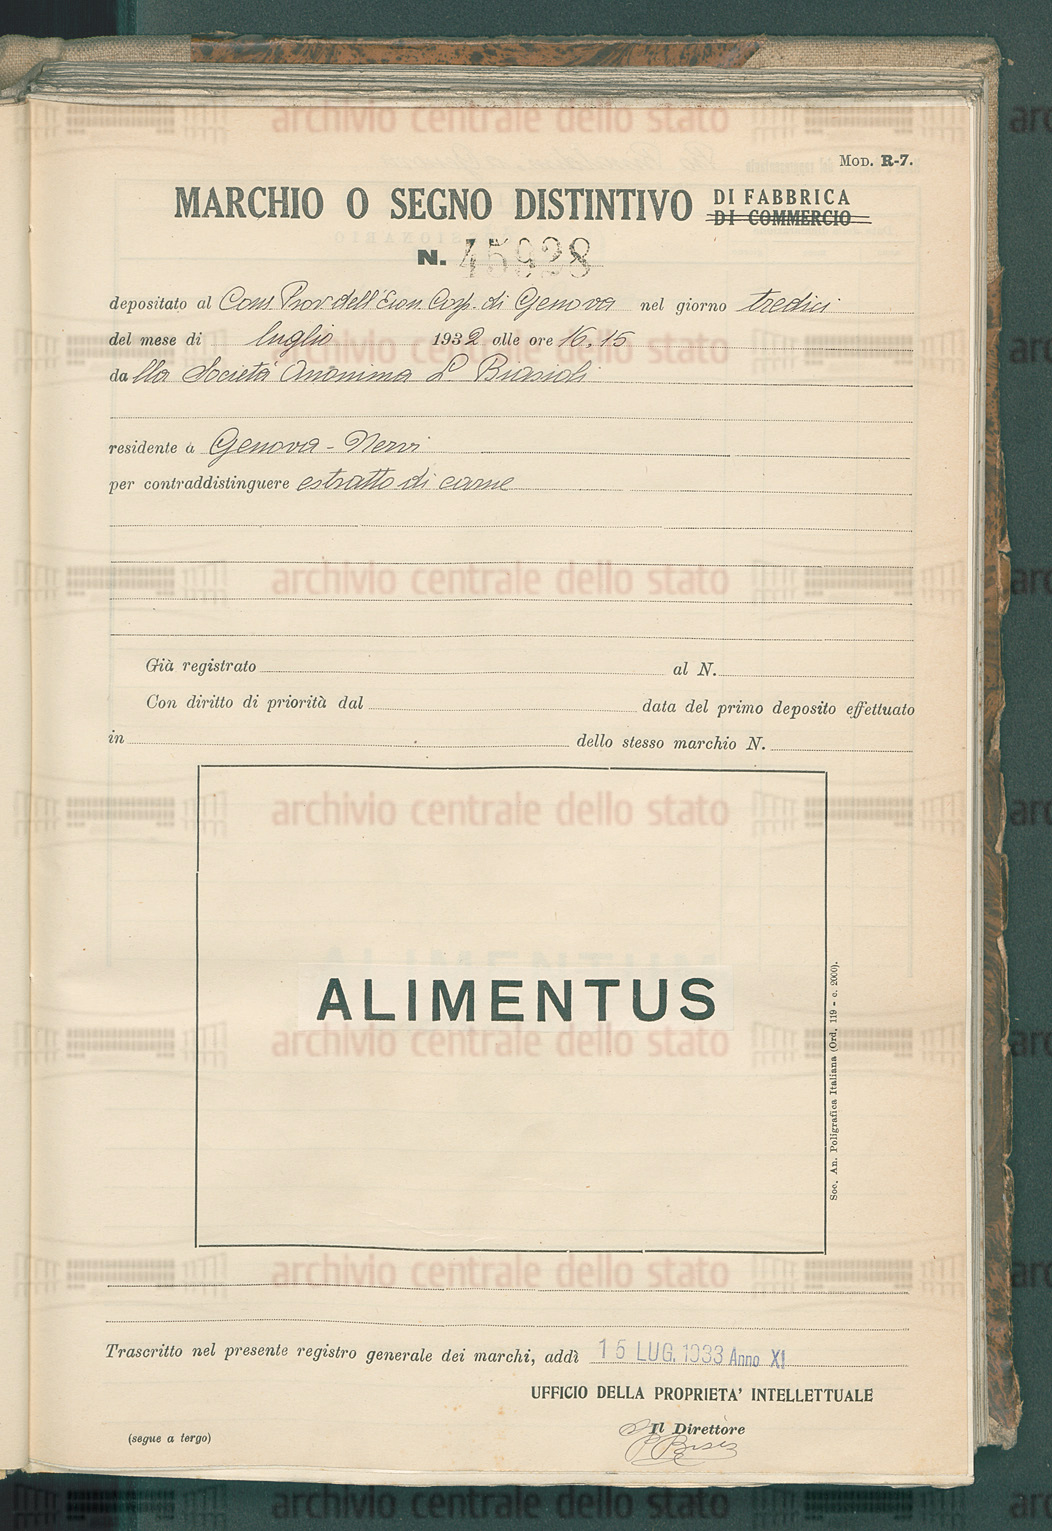 Mod. R-7.
MARCHIO O SEGNO DISTINTIVO DI FABBRICA
DI COMMERCIO
N. 45928
depositato al Cons. Prov. dell'Econ. Corp. di Genova nel giorno tredici
del mese di luglio 1932 alle ore 16.15
dalla Società Anonima L. Biasioli
residente a Genova - Nervi
per contraddistinguere estratto di carne
Già registrato al N.
Con diritto di priorità dal data del primo deposito effettuato
in dello stesso marchio N.
ALIMENTUS
Soc. An. Poligrafica Italiana (Ord. 119 - c. 2000).
Trascritto nel presente registro generale dei marchi, addì 15 LUG. 1933 Anno XI
UFFICIO DELLA PROPRIETA' INTELLETTUALE
Il Direttore
(segue a tergo)
archivio centrale dello stato
archivio centrale dello stato
archivio centrale dello stato
archivio centrale dello stato
archivio centrale dello stato
archivio centrale dello stato
archivio centrale dello stato